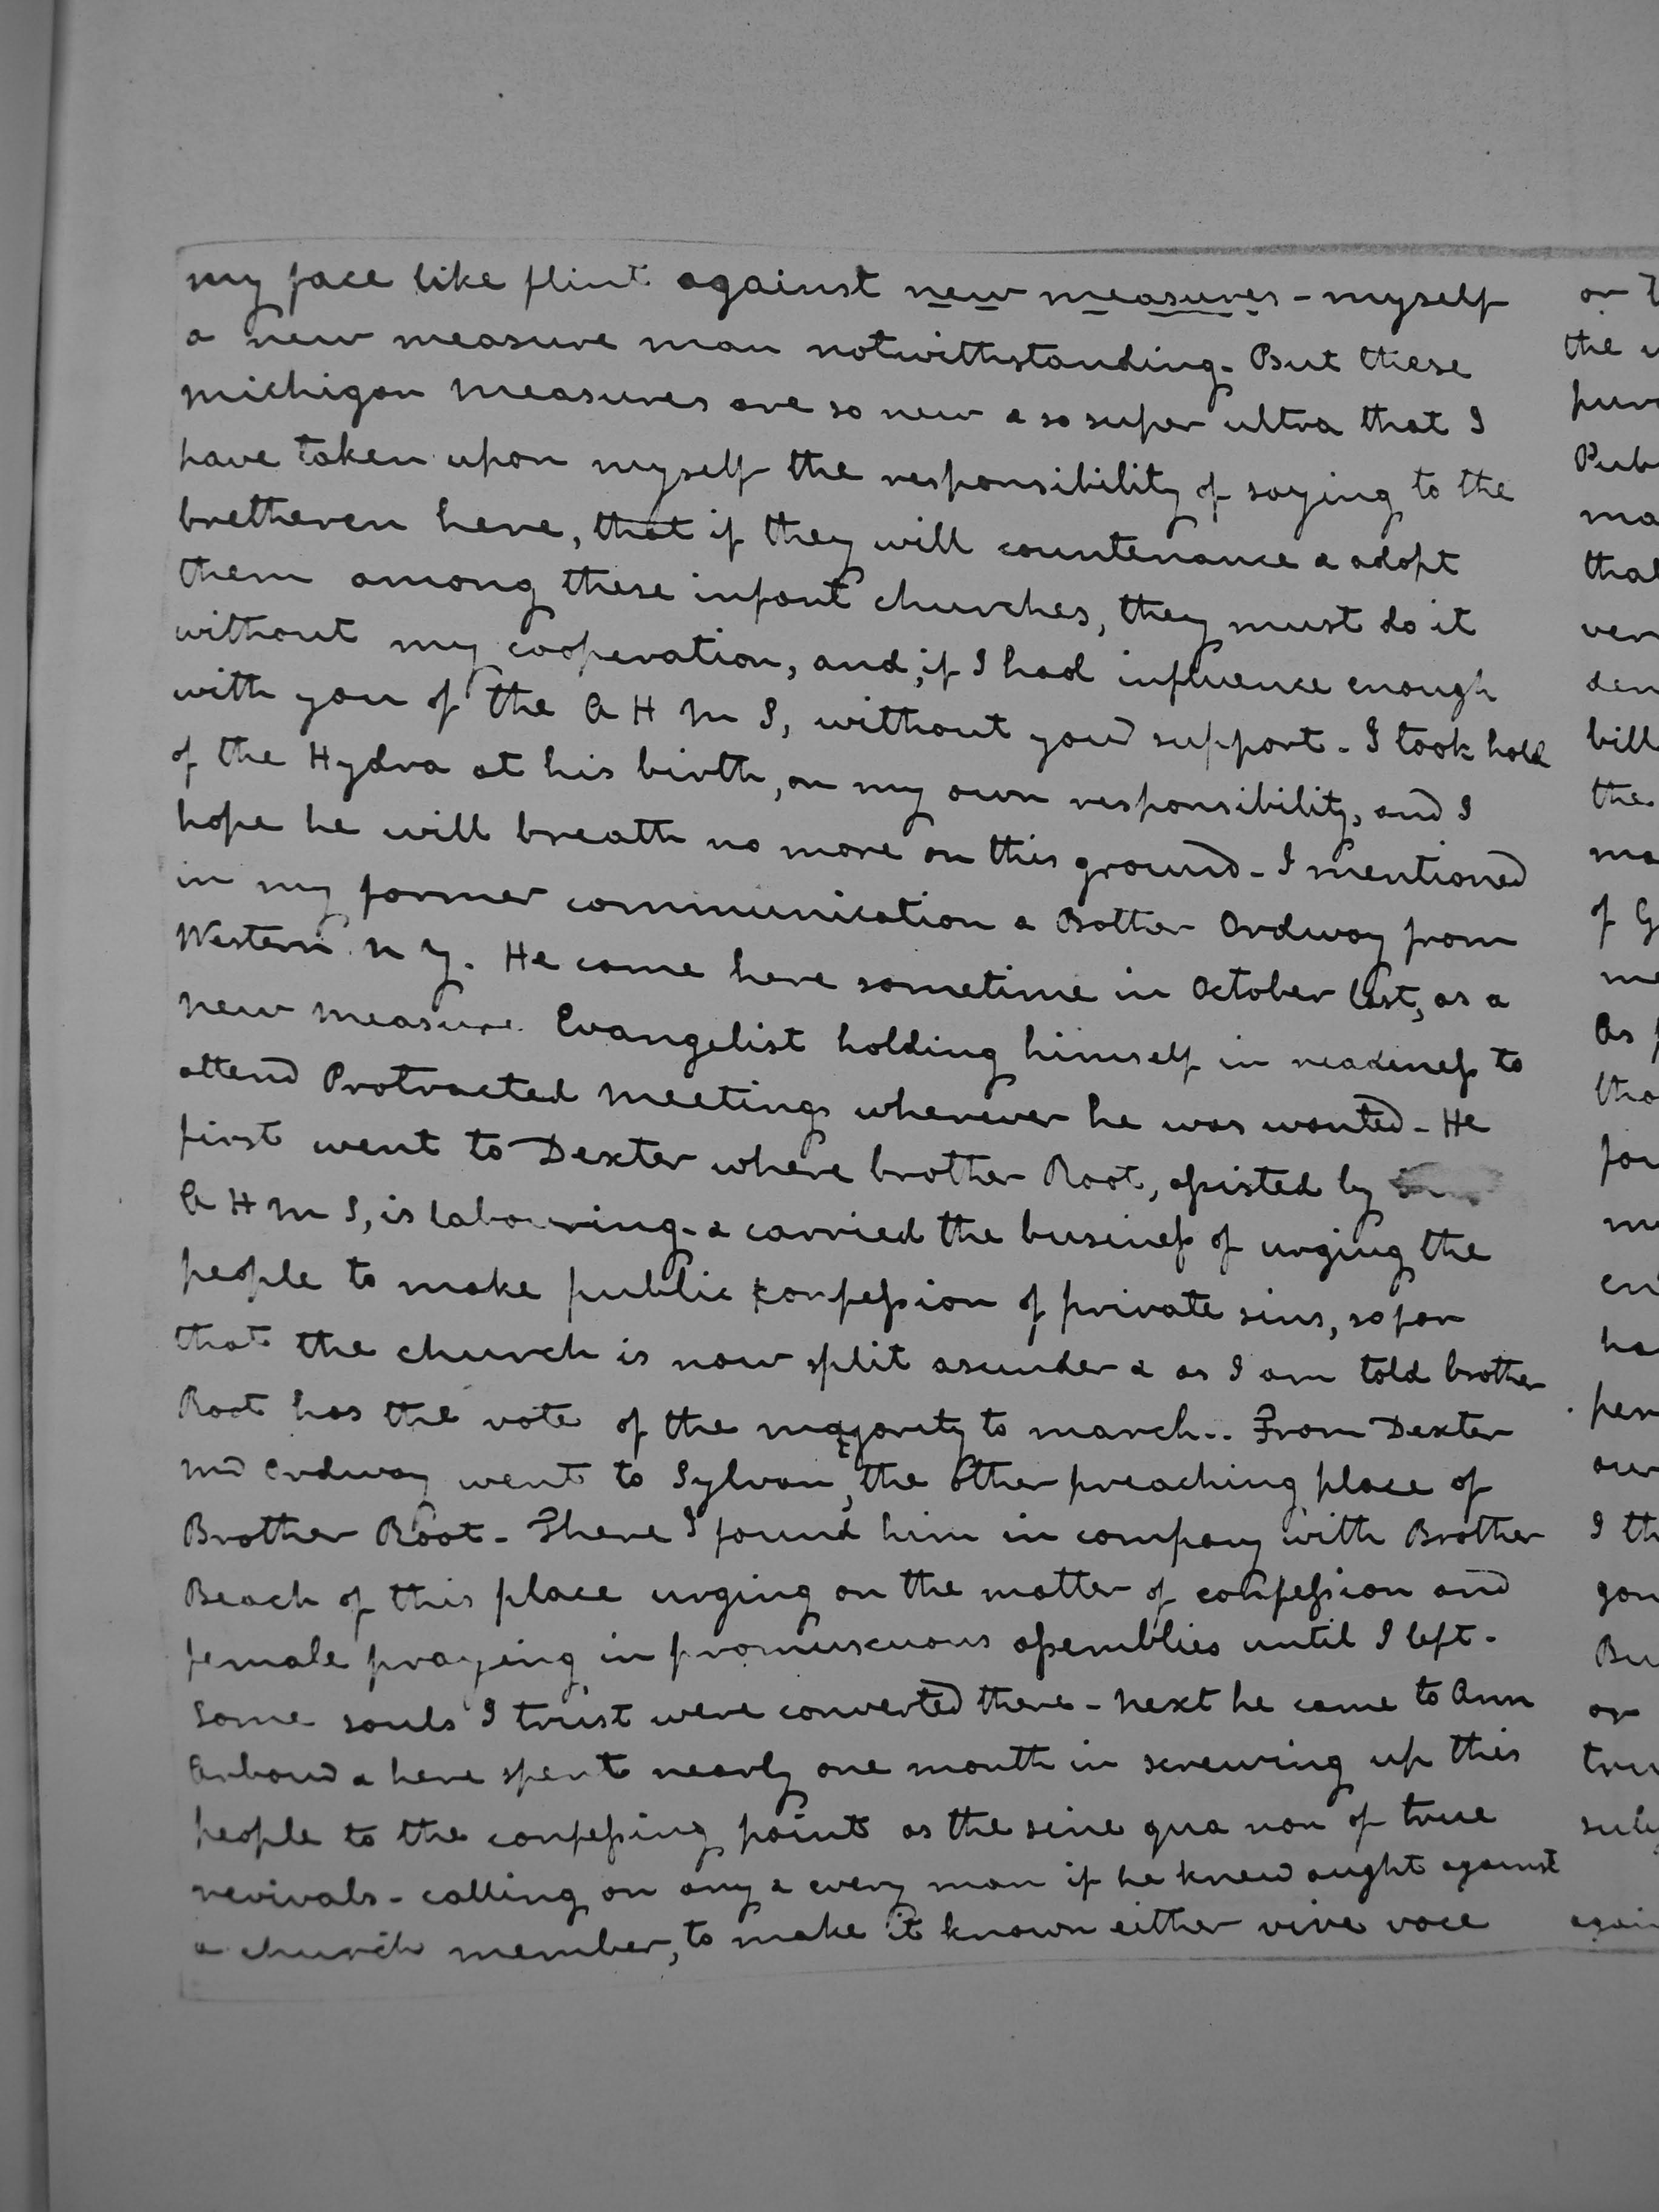 my face like flint against new measures - myself
a new measure man notwithstanding. But these
Michigan measures are so new & so super ultra that I
have taken upon myself the responsibility of saying to the
bretheren here, that if they will countenance & adopt
them among these infant churches, they must do it
without my cooperation, and, if I had influence enough
with you of the A H M S, without your support. I took hold
of the Hydra at his birth, on my own responsibility, and I
hope he will breath no more on this ground - I mentioned
in my former communication a Bother Ordway from
Western N Y. He came here sometime in October last, as a
new measure Evangelist holding himself in readiness to
attend Protracted meetings wherever he was wanted - He
first went to Dexter where brother Root, assisted by
A H M S, is labouring - & carried the business of urging the
people to make public confession of private sins, so far
that the church is now split asunder & as I am told brother
Root has the vote of the majority to march .. From Dexter
Mr Ordway went to Sylvan, the other preaching place of
Brother Root - There I found him in company with Brother
Beach of this place urging on the matter of confession and
female praying in promuscuous assemblies until I left.
Some souls I trust were converted there - next he came to Ann
Arbour & here spent nearly one month in screwing up this
people to the confessing point as the sine qua non of true
revivals - calling on any & every man if he knew aught against
a church member, to make it known either vive voce
or
the
Pub
ma
that
ver
den
bill
the
ma
of G
me
As
tho
for
m
en
ha
per
our
I th
gon
Bu
or
tru
sub
again